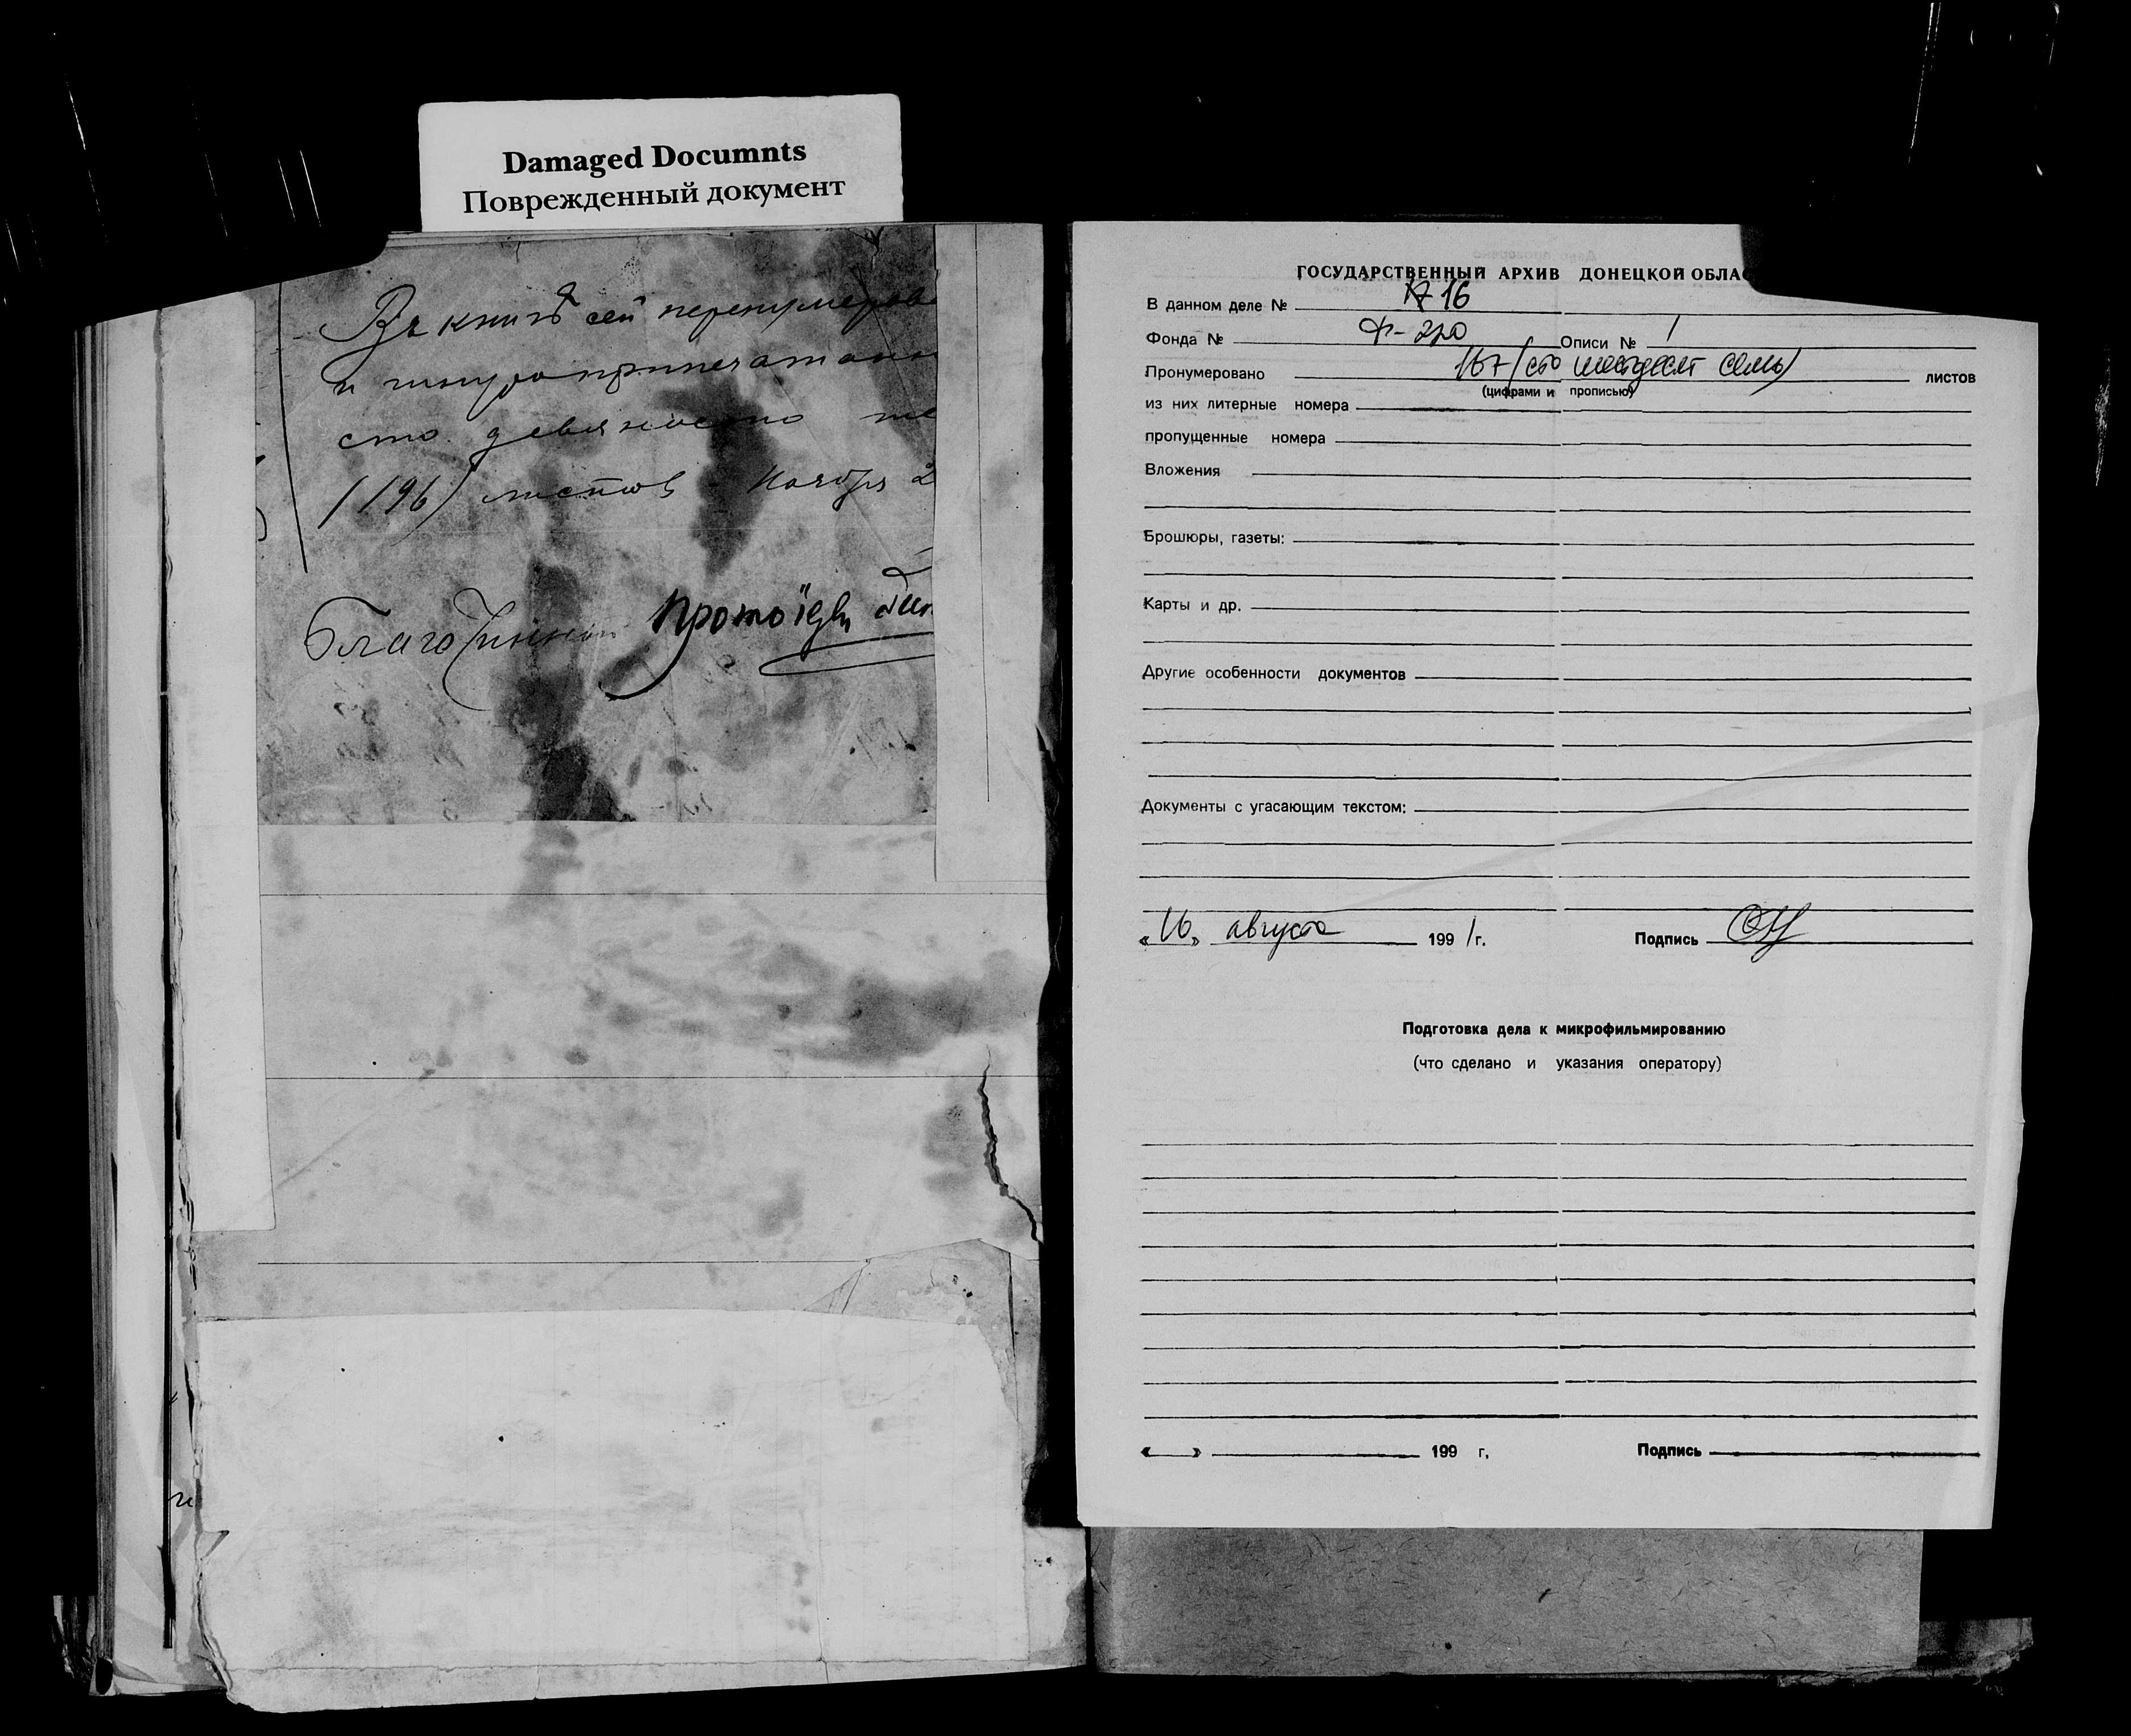 Damaged Documnts
Поврежденный документ
Въ книгѣ сей перенумерова
и шнуроприпечатано
сто девяносто ше
(196) листовъ - Ноября 2
Благочинный Протоіерей
ГОСУДАРСТВЕННЫЙ АРХИВ ДОНЕЦКОЙ ОБЛАС
В данном деле № 16
Фонда № Ф-220 Описи № 1
Пронумеровано 167 (сто шестьдесят семь) листов
(цифрами и прописью)
из них литерные номера
пропущенные номера
Вложения
Брошюры, газеты:
Карты и др.
Другие особенности документов
Документы с угасающим текстом:
«16» августа 1991 г. Подпись
Подготовка дела к микрофильмированию
(что сделано и указания оператору)
« » 199 г. Подпись